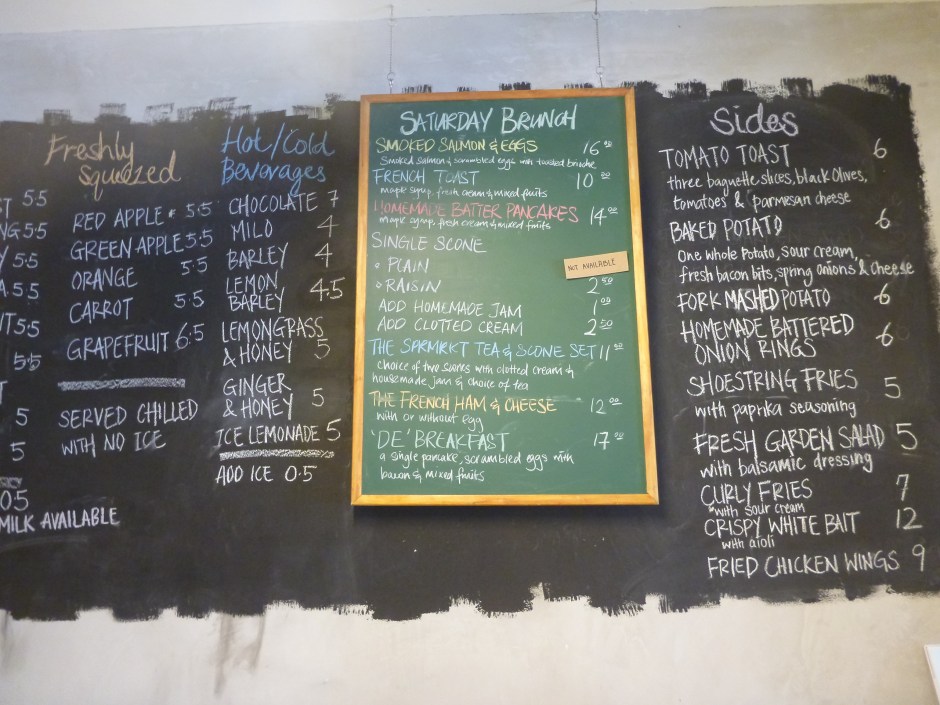 5.5
5.5
5.5
5.5
5.5
5.5
5
5
0.5
MILK AVAILABLE
Freshly
squeezed
RED APPLE 5.5
GREEN APPLE 5.5
ORANGE 5.5
CARROT 5.5
GRAPEFRUIT 6.5
SERVED CHILLED
WITH NO ICE
Hot/Cold
Beverages
CHOCOLATE 7
MILO 4
BARLEY 4
LEMON
BARLEY 4.5
LEMONGRASS
& HONEY 5
GINGER
& HONEY 5
ICE LEMONADE 5
ADD ICE 0.5
SATURDAY BRUNCH
SMOKED SALMON & EGGS 16.00
Smoked Salmon & scrambled eggs with toasted brioche
FRENCH TOAST 10.00
maple syrup, fresh cream & mixed fruits
HOMEMADE BATTER PANCAKES 14.00
maple syrup, fresh cream & mixed fruits
SINGLE SCONE
• PLAIN NOT AVAILABLE
• RAISIN 2.50
ADD HOMEMADE JAM 1.00
ADD CLOTTED CREAM 2.50
THE SPRMRKT TEA & SCONE SET 11.00
choice of two scones with clotted cream &
housemade jam & choice of tea
THE FRENCH HAM & CHEESE 12.00
with or without egg
'DE' BREAKFAST 17.00
a single pancake, scrambled eggs with
bacon & mixed fruits
Sides
TOMATO TOAST 6
three baguette slices, black olives,
tomatoes & parmesan cheese
BAKED POTATO 6
One whole potato, sour cream,
fresh bacon bits, spring onions & cheese
FORK MASHED POTATO 6
HOMEMADE BATTERED
ONION RINGS 6
SHOESTRING FRIES 5
with paprika seasoning
FRESH GARDEN SALAD 5
with balsamic dressing
CURLY FRIES 7
*with sour cream
CRISPY WHITE BAIT 12
with aioli
FRIED CHICKEN WINGS 9